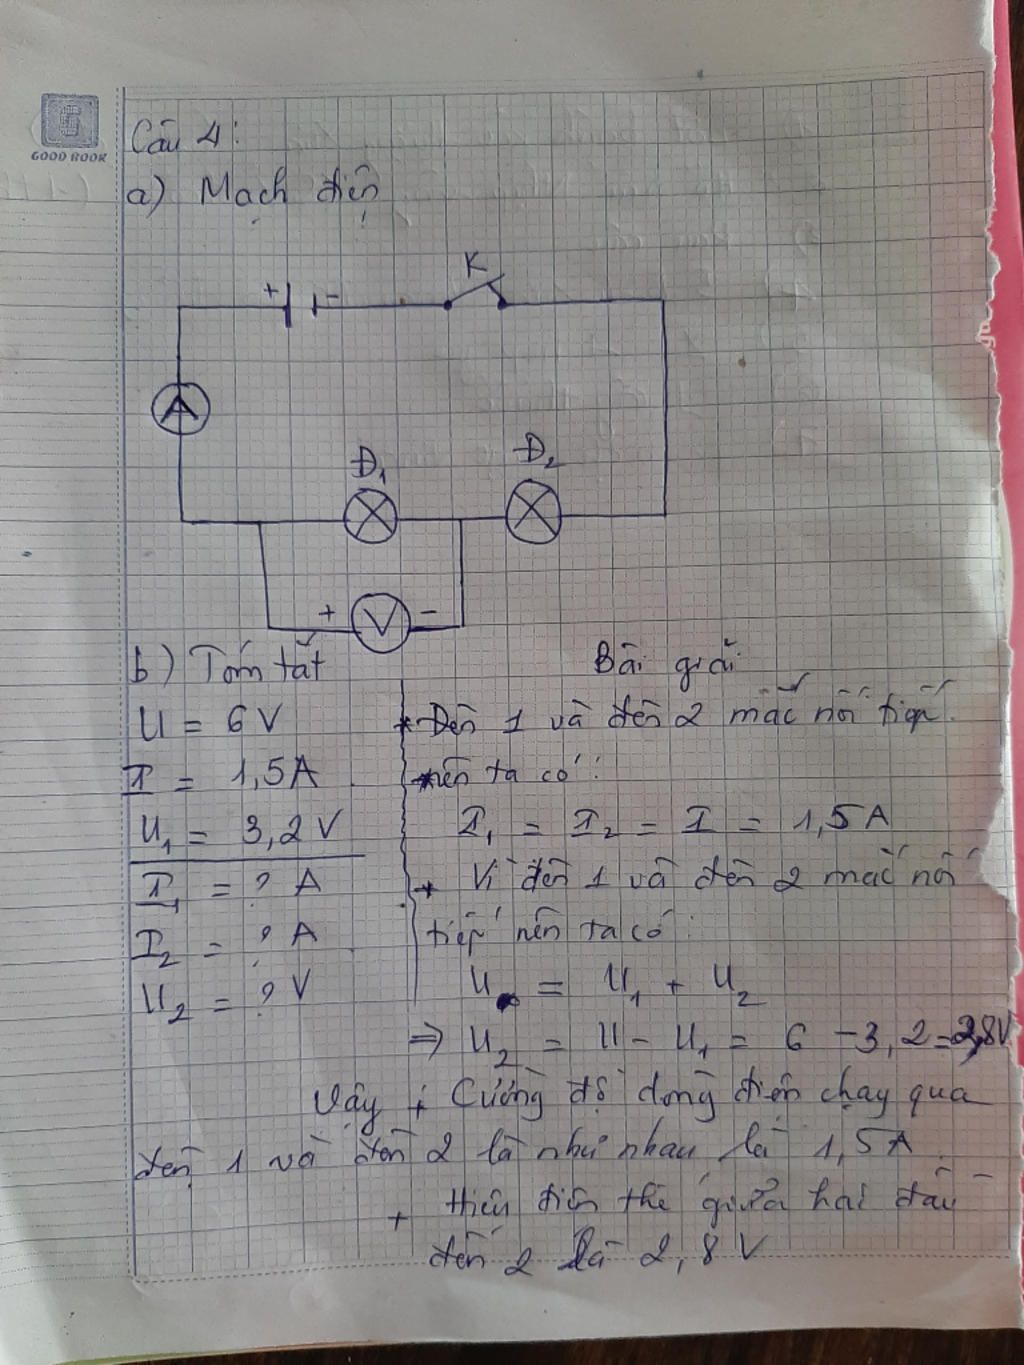 GOOD BOOK
Câu 4:
a) Mạch điện
+ - K
A
Đ₁ Đ₂
+ V -
b) Tóm tắt
Bài giải
U = 6V
I = 1,5A
U₁ = 3,2V
I₁ = ? A
I₂ = ? A
U₂ = ? V
+ Đèn 1 và đèn 2 mắc nối tiếp.
nên ta có:
I₁ = I₂ = I = 1,5A
+ Vì đèn 1 và đèn 2 mắc nối
tiếp nên ta có:
U = U₁ + U₂
⇒ U₂ = U - U₁ = 6 - 3,2 = 2,8V
Vậy + Cường độ dòng điện chạy qua
đèn 1 và đèn 2 là như nhau là 1,5A.
+ Hiệu điện thế giữa hai đầu
đèn 2 là 2,8V